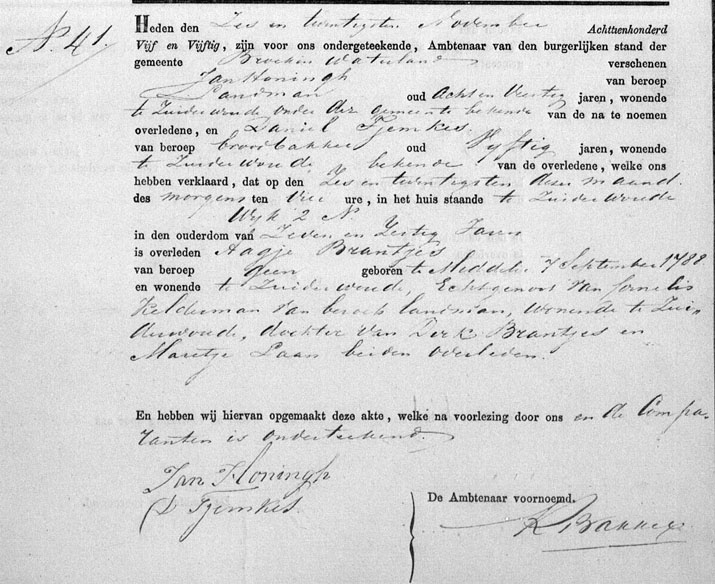 N. 41
Heden den Zes en twintigsten November Achttienhonderd
Vijf en Vijftig, zijn voor ons ondergeteekende, Ambtenaar van den burgerlijken stand der
gemeente Broek in Waterland verschenen
Jan Honingh van beroep
Landman oud Acht en Veertig jaren, wonende
te Zuiderwoude onder der gemeente bekende van de na te noemen
overledene, en Daniel Tjemkes
van beroep broodbakker oud Vyftig jaren, wonende
te Zuiderwoude bekende van de overledene, welke ons
hebben verklaard, dat op den Zes en twintigsten dezer maand
des morgens ten Vier ure, in het huis staande te Zuiderwoude
Wyk 2 N.
in den ouderdom van Zeven en Zestig Jaren
is overleden Aagje Brantjes
van beroep Geen geboren te Middelie 7 September 1788
en wonende te Zuiderwoude, Echtgenoot van Cornelis
Kelderman van beroep landman, wonende te Zui-
derwoude, dochter van Dirk Brantjes en
Maretje Laan beiden overleden.
En hebben wij hiervan opgemaakt deze akte, welke na voorlezing door ons en de Compa-
ranten is onderteekend.
Jan Honingh
D Tjemkes
De Ambtenaar voornoemd.
K Bakker